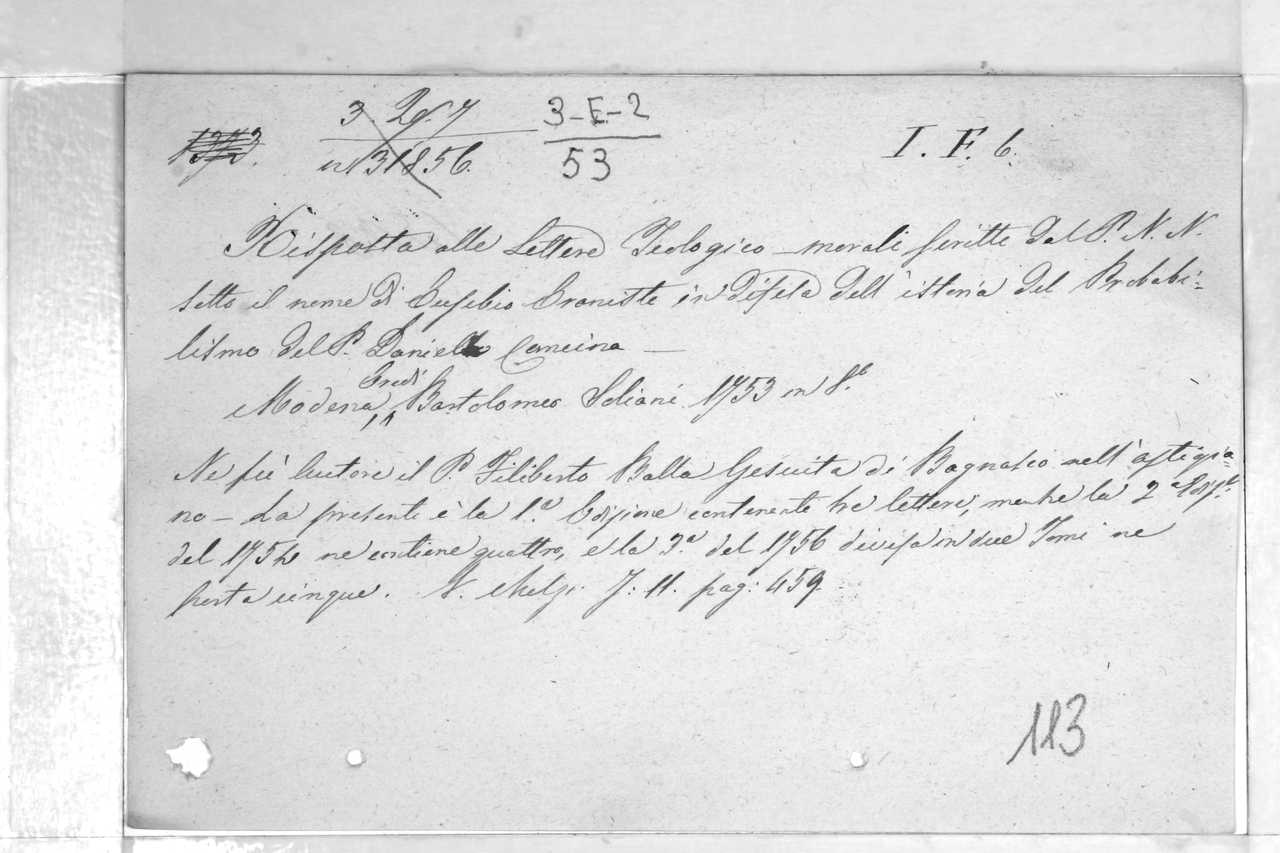 3-E-2
I. F. 6.
53
Risposta alle Lettere Teologico-morali scritte dal P. N. N.
sotto il nome di Eusebio Eraniste in difesa dell'istoria del Probabi-
lismo del P. Daniello Concina —
Modena Eredi Bartolomeo Soliani 1753 in 8.º
Ne fù autore il P. Filiberto Balla Gesuita di Bagnasco nell'astigia-
no - La presente è la 1.ª Edizione contenente tre lettere, mentre la 2ª
del 1754 ne contiene quattro, e la 3.ª del 1756 divisa in due Tomi ne
porta cinque. V. Melzi T: 11. pag: 459.
113